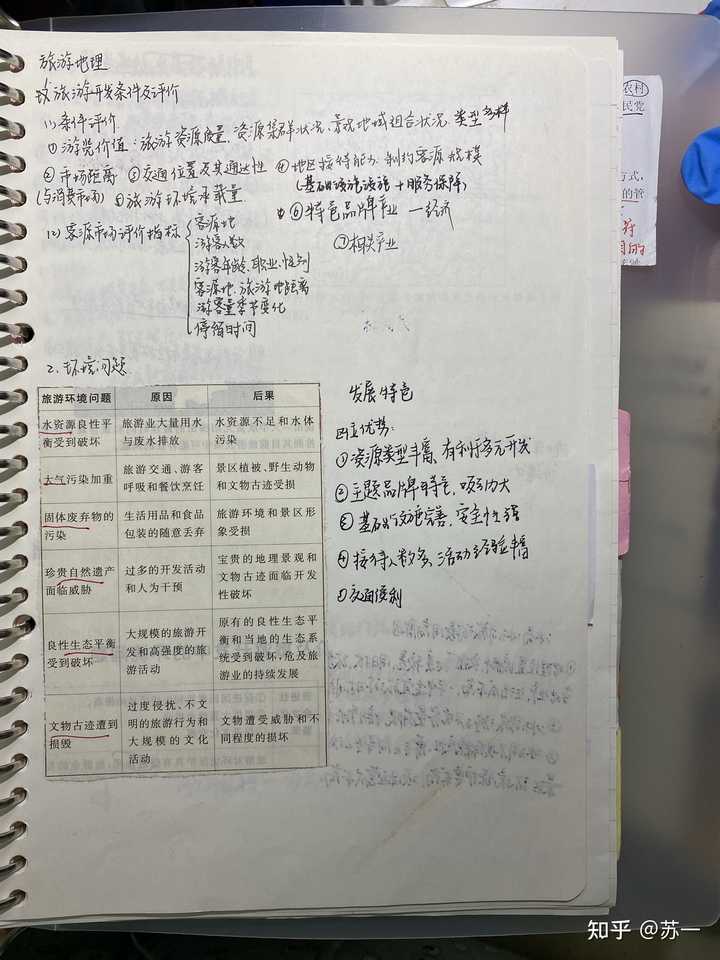 旅游地理
旅游开发条件及评价
(1)条件评价
①游览价值:旅游资源质量,资源集群状况、景观地域组合状况,类型多样
②市场距离 ③交通位置及其通达性 ④地区接待能力,制约客源规模
(与消费市场) ⑤旅游环境承载量 (基础设施设施+服务保障)
⑥特色品牌产业 —经济
(2)客源市场评价指标
客源地
⑦相关产业
游客人数
游客年龄、职业、性别
客源地、旅游地距离
游客量季节变化
停留时间
2、环境问题
旅游环境问题 原因 后果
水资源良性平衡受到破坏 旅游业大量用水与废水排放 水资源不足和水体污染
大气污染加重 旅游交通、游客呼吸和餐饮烹饪 景区植被、野生动物和文物古迹受损
固体废弃物的污染 生活用品和食品包装的随意丢弃 旅游环境和景区形象受损
珍贵自然遗产面临威胁 过多的开发活动和人为干预 宝贵的地理景观和文物古迹面临开发性破坏
良性生态平衡受到破坏 大规模的旅游开发和高强度的旅游活动 原有的良性生态平衡和当地的生态系统受到破坏,危及旅游业的持续发展
文物古迹遭到损毁 过度侵扰、不文明的旅游行为和大规模的文化活动 文物遭受威胁和不同程度的损坏
发展特色
区位优势:
①资源类型丰富,有利于多元开发
②主题品牌特色,吸引力大
③基础设施完善,安全性强
④接待人数多,活动经验丰富
①交通便利
农村
民党
方式,
的管
符
目的
知乎 @苏一